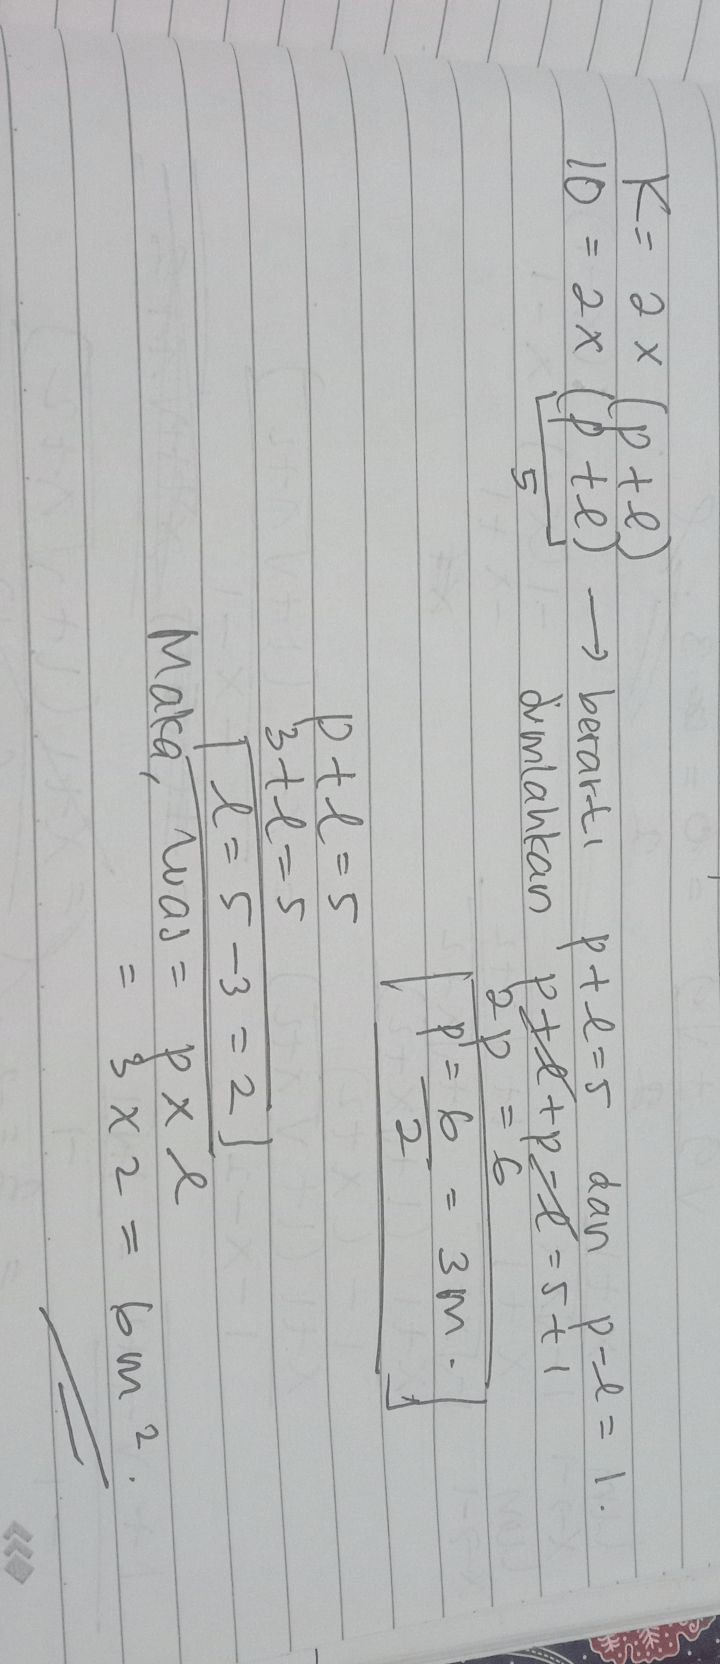 K = 2 x (p + l)
10 = 2 x (p + l) → berarti p + l = 5 dan p - l = 1.
5
dimlahkan p + l + p - l = 5 + 1
2p = 6
p = 6/2 = 3 m.
p + l = 5
3 + l = 5
l = 5 - 3 = 2
Maka, luas = p x l
= 3 x 2 = 6 m².